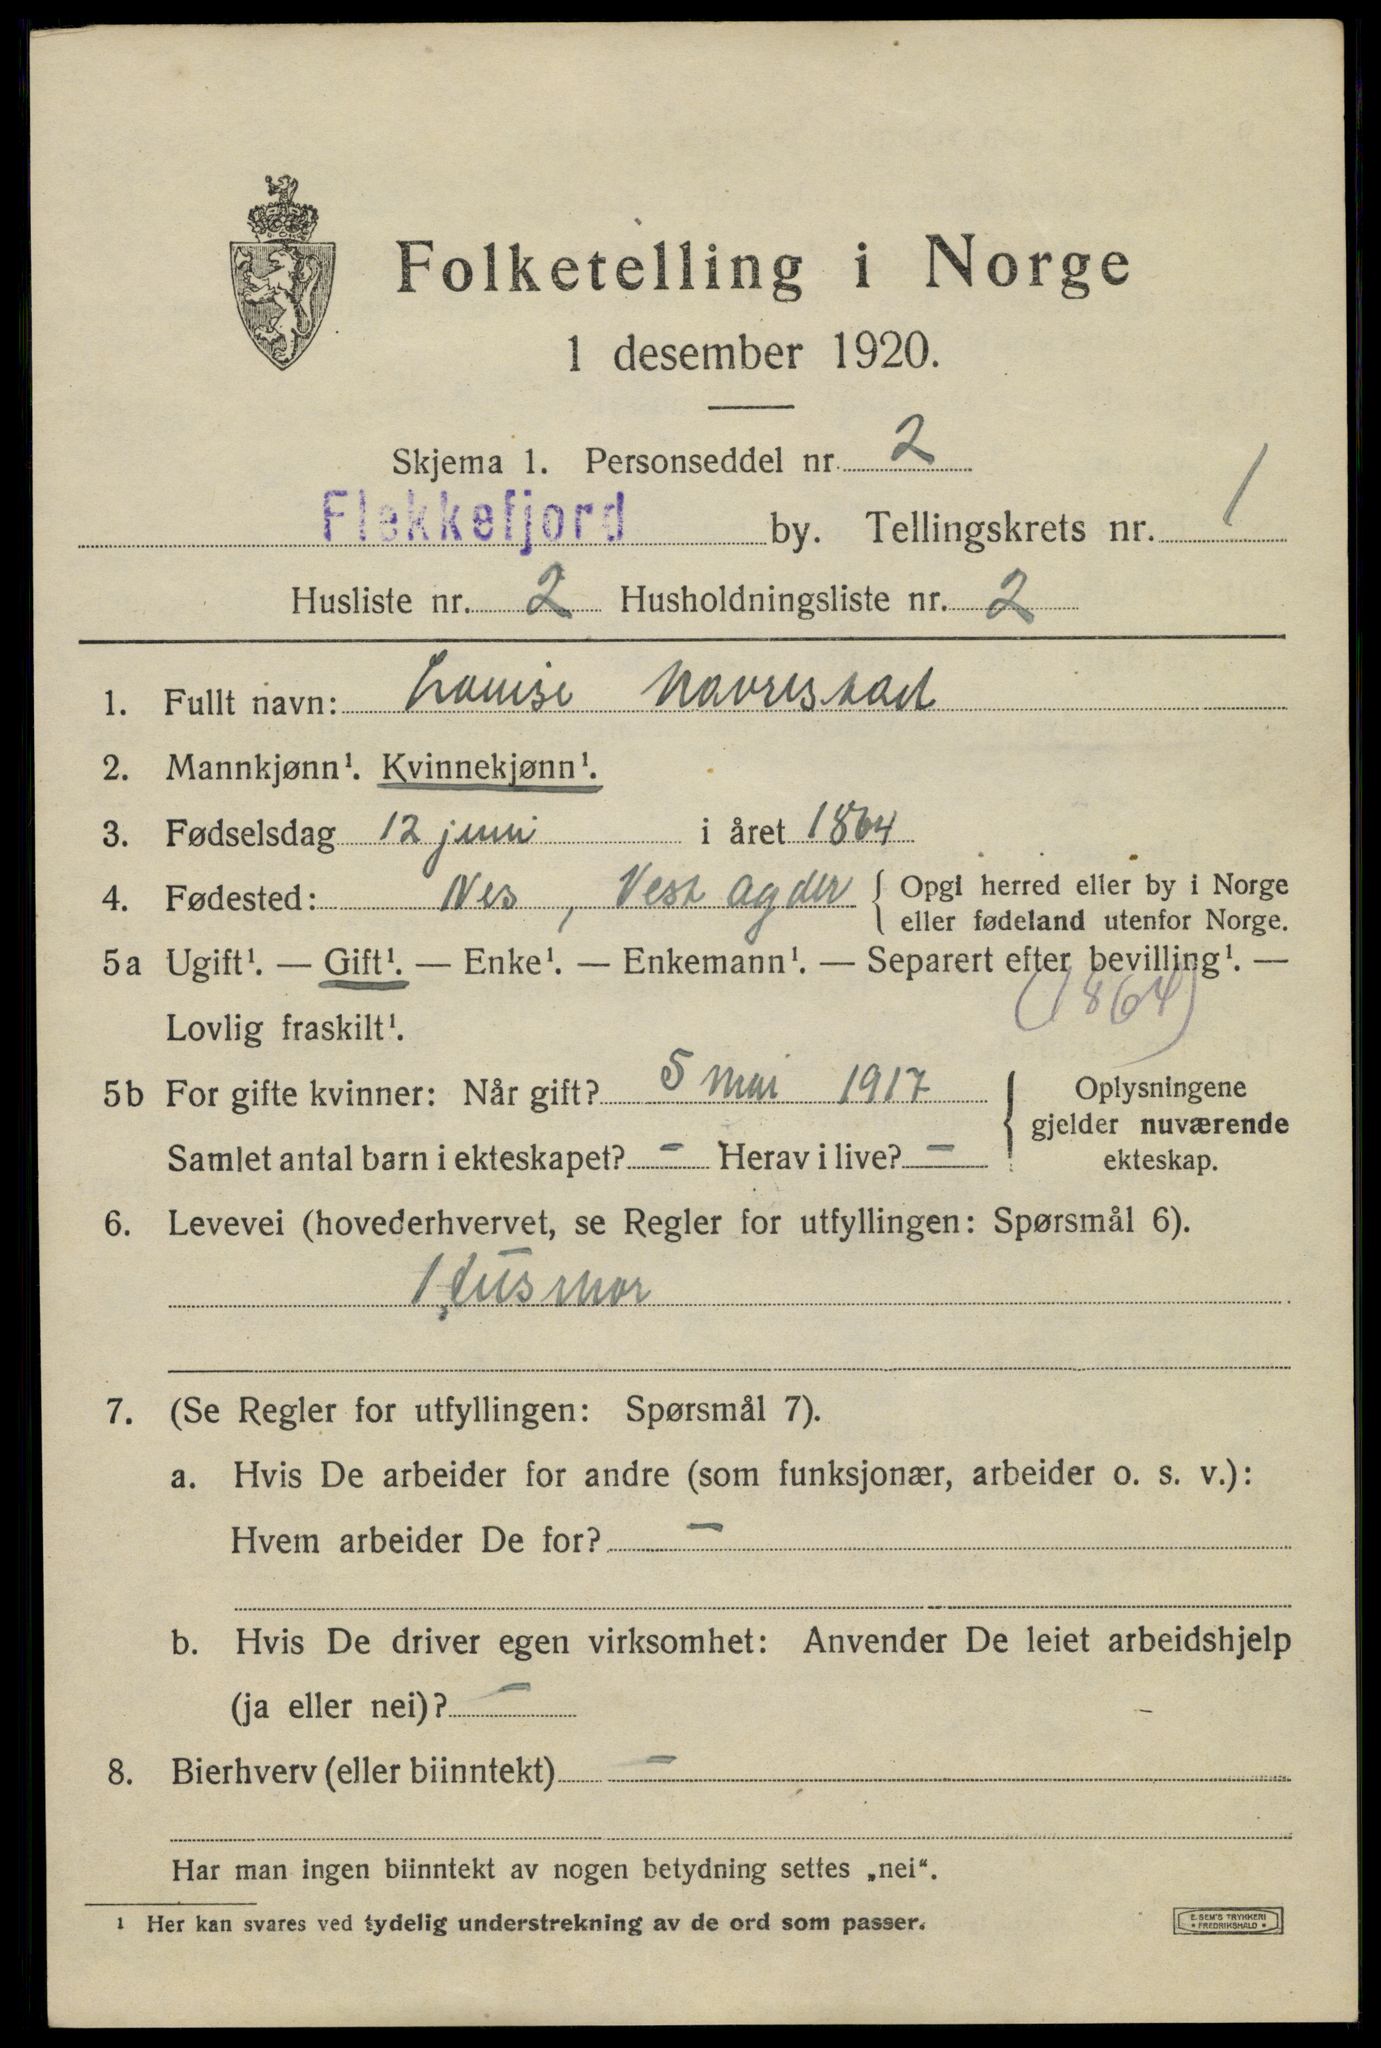 Folketelling i Norge
1 desember 1920.
Skjema 1. Personseddel nr. 2
Flekkefjord by. Tellingskrets nr. 1
Husliste nr. 2 Husholdningsliste nr. 2
1. Fullt navn: Louise Navrestad
2. Mannkjønn¹. Kvinnekjønn¹.
3. Fødselsdag 12 juni i året 1864
4. Fødested: Nes, Vest Agder { Opgi herred eller by i Norge
eller fødeland utenfor Norge.
5a Ugift¹. — Gift¹. — Enke¹. — Enkemann¹. — Separert efter bevilling¹. —
(1864)
Lovlig fraskilt¹.
5b For gifte kvinner: Når gift? 5 mai 1917 } Oplysningene
gjelder nuværende
Samlet antal barn i ekteskapet? – Herav i live? – ekteskap.
6. Levevei (hovederhvervet, se Regler for utfyllingen: Spørsmål 6).
Husmor
7. (Se Regler for utfyllingen: Spørsmål 7).
a. Hvis De arbeider for andre (som funksjonær, arbeider o. s. v.):
Hvem arbeider De for? –
b. Hvis De driver egen virksomhet: Anvender De leiet arbeidshjelp
(ja eller nei)? –
8. Bierhverv (eller biinntekt) –
Har man ingen biinntekt av nogen betydning settes „nei“.
¹ Her kan svares ved tydelig understrekning av de ord som passer.
E. SEM'S TRYKKERI
• FREDRIKSHALD •